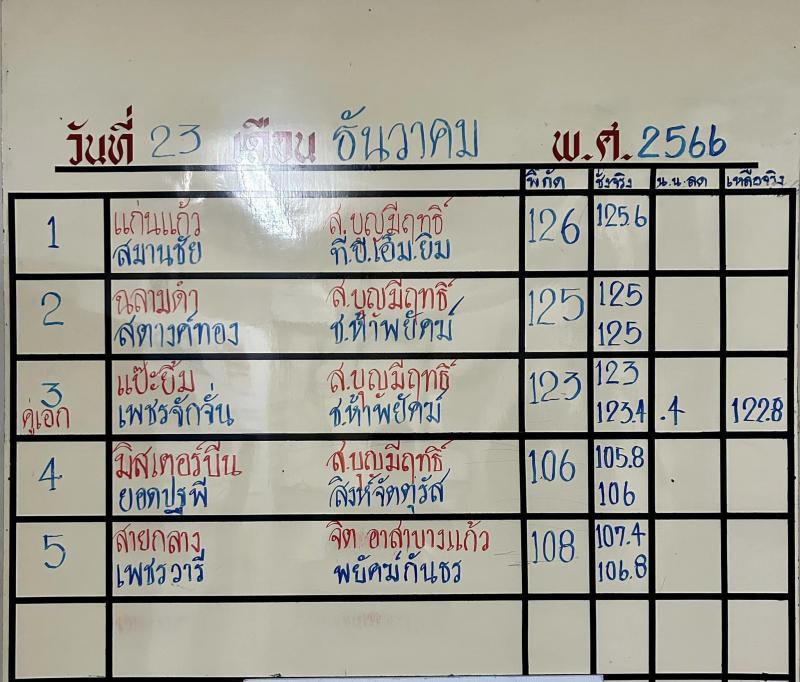 วันที่ 23 เดือน ธันวาคม พ.ศ. 2566
พิกัด ชั่งจริง น.น.ลด เหลือจริง
1 แก่นแก้ว ส.บุญมีฤทธิ์ 126 125.6
สมานชัย ที.บี.เอ็ม.ยิม
2 ฉลามดำ ส.บุญมีฤทธิ์ 125 125
สตางค์ทอง ช.ห้าพยัคฆ์ 125
3 แป๊ะยิ้ม ส.บุญมีฤทธิ์ 123 123
คู่เอก เพชรจักจั่น ช.ห้าพยัคฆ์ 123.4 .4 122.8
4 มิสเตอร์บีน ส.บุญมีฤทธิ์ 106 105.8
ยอดปฐพี สิงห์จัตตุรัส 106
5 สายกลาง จิต อาสาบางแก้ว 108 107.4
เพชรวารี พยัคฆ์กันธร 106.8